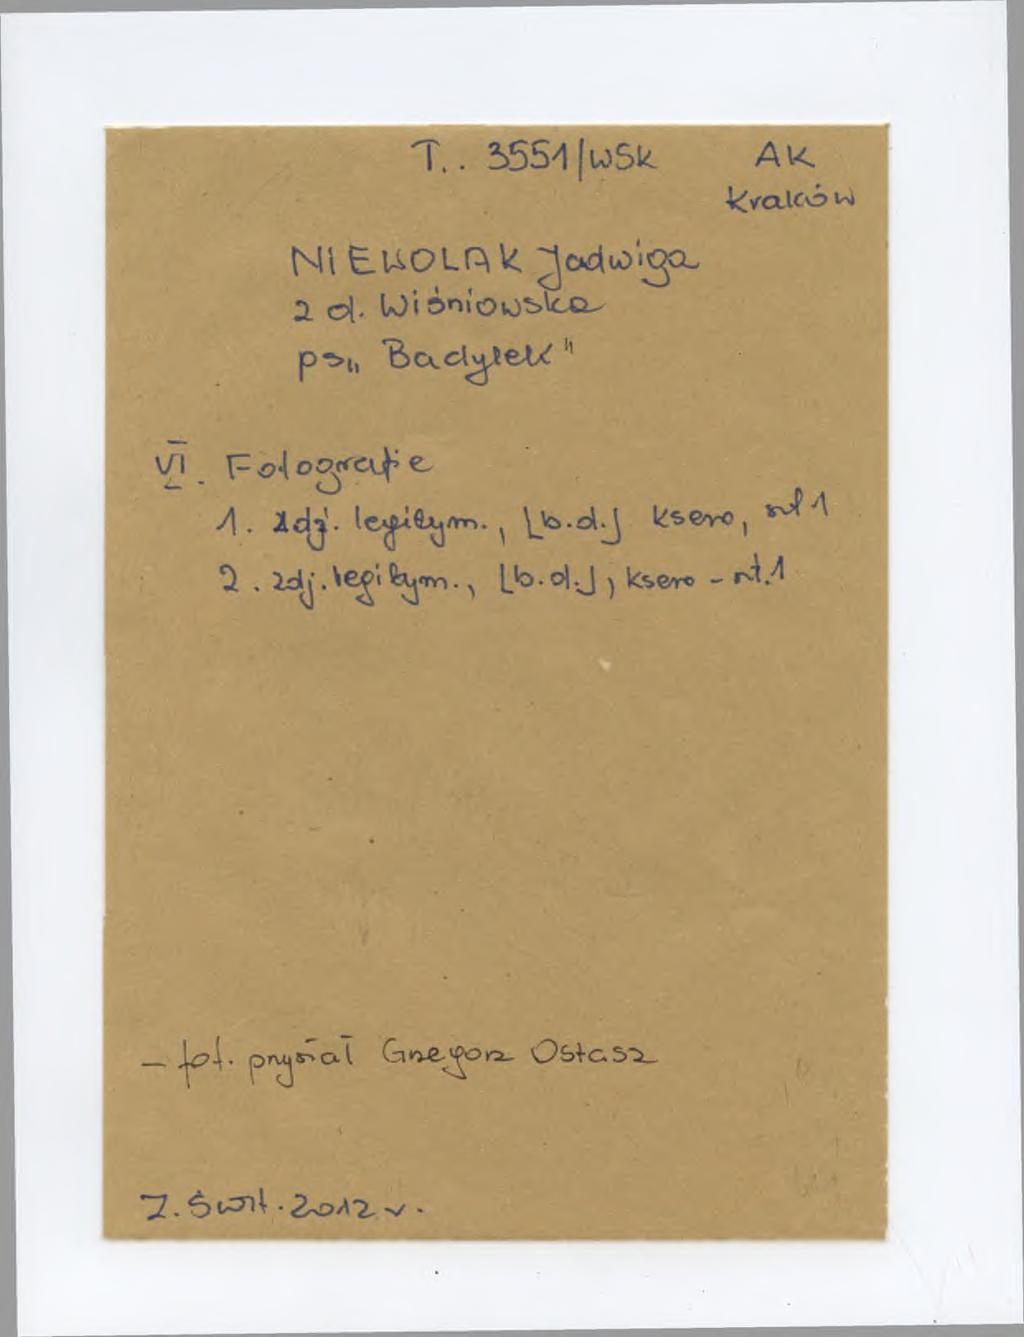 T.. 3551/WSK AK
Kraków
NIEWOLAK Jadwiga
z d. Wiśniowska
ps „Badylek"
VI. Fotografie
1. zdj. legitym., [b.d.] ksero, szt 1
2. zdj. legitym., [b.d.], ksero - szt. 1
- fot. przysłał Grzegorz Ostasz
2012 r.